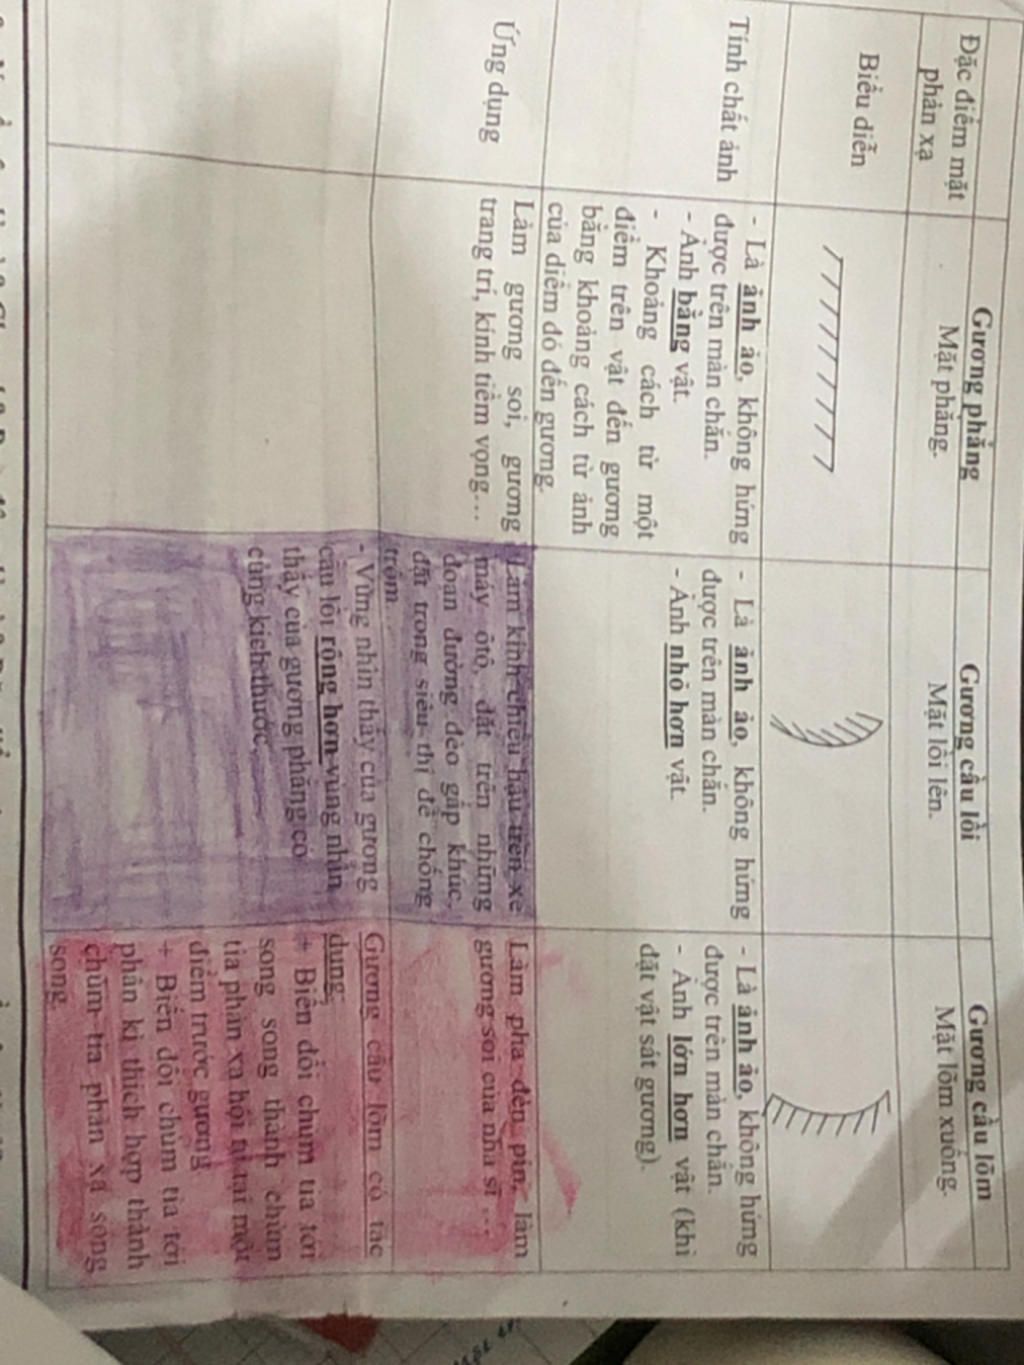 Gương phẳng
Gương cầu lồi
Gương cầu lõm
Đặc điểm mặt
phản xạ
Mặt phẳng.
Mặt lồi lên.
Mặt lõm xuống.
Biểu diễn
Tính chất ảnh
- Là ảnh ảo, không hứng
được trên màn chắn.
- Ảnh bằng vật.
- Khoảng cách từ một
điểm trên vật đến gương
bằng khoảng cách từ ảnh
của điểm đó đến gương.
- Là ảnh ảo, không hứng
được trên màn chắn.
- Ảnh nhỏ hơn vật.
- Là ảnh ảo, không hứng
được trên màn chắn.
- Ảnh lớn hơn vật (khi
đặt vật sát gương).
Ứng dụng
Làm gương soi, gương
trang trí, kính tiềm vọng…
Làm kính chiếu hậu trên xe
máy ôtô, đặt trên những
đoạn đường đèo gấp khúc,
đặt trong siêu thị để chống
trộm
Làm pha đèn pin, làm
gương soi của nha sĩ …
- Vùng nhìn thấy của gương
cầu lồi rộng hơn vùng nhìn
thấy của gương phẳng có
cùng kích thước
Gương cầu lõm có tác
dụng:
+ Biến đổi chùm tia tới
song song thành chùm
tia phản xạ hội tụ tại một
điểm trước gương
+ Biến đổi chùm tia tới
phân kì thích hợp thành
chùm tia phản xạ song
song.